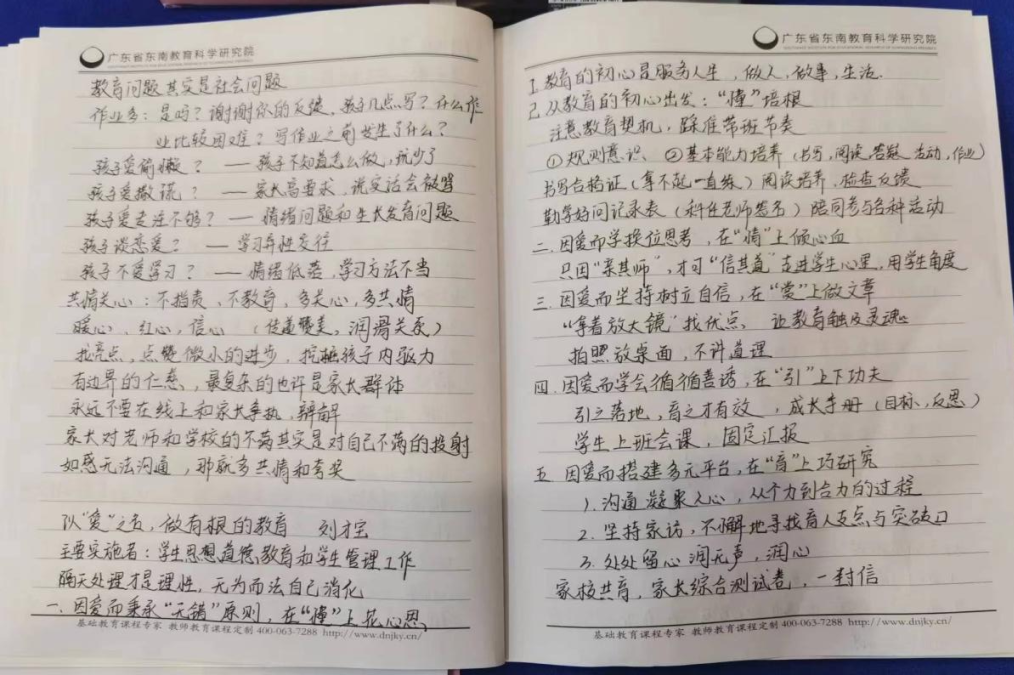 广东省东南教育科学研究院
教育问题其实是社会问题
作业多：是吗？谢谢你的反馈，孩子几点写？什么作
业比较困难？写作业之前发生了什么？
孩子爱偷懒？ — 孩子不知道怎么做，玩少了
孩子爱撒谎？ — 家长高要求，说实话会被骂
孩子爱专注不够？ — 情绪问题和生长发育问题
孩子谈恋爱？ — 学习异性交往
孩子不爱学习？ — 情绪低落，学习方法不当
共情关心：不指责，不教育，多关心，多共情
暖心，红心，信心 （传递赞美，润滑关系）
找亮点，点赞微小的进步，挖掘孩子内驱力
有边界的仁慈、最复杂的也许是家长群体
永远不要在线上和家长争执，辩解
家长对老师和学校的不满其实是对自己不满的投射
如感无法沟通，那就多共情和夸奖
以“爱”之名，做有根的教育 刘才宝
主要实施者：学生思想道德教育和学生管理工作
隔天处理才是理性，无为而法自己消化
一、因爱而秉承“无错”原则，在“懂”上花心思
基础教育课程专家 教师教育课程定制 400-063-7288 http://www.dnjky.cn/
广东省东南教育科学研究院
1. 教育的初心是服务人生，做人，做事，生活.
2. 从教育的初心出发：“懂”培根
注意教育契机，踩准带班节奏
①规则意识、②基本能力培养（书写，阅读，答题，活动，作业）
书写合格证（拿不起一直练）阅读培养，检查反馈
勤学好问记录表（科任老师签名）陪同参与各种活动
二、因爱而学换位思考，在“情”上倾心血
只因“亲其师”，才可“信其道”走进学生心里，用学生角度
三、因爱而坚持树立自信，在“爱”上做文章
“拿着放大镜”找优点、让教育触及灵魂
拍照放桌面，不讲道理
四、因爱而学会循循善诱，在“引”上下功夫
引之落地，育之才有效，成长手册（目标、反思）
学生上班会课，固定汇报
五 因爱而搭建多元平台，在“育”上巧研究
1. 沟通凝聚人心，从个力到合力的过程
2. 坚持家访，不懈地寻找育人支点与突破口
3. 处处留心润无声，润心
家校共育，家长综合测试卷，一封信
基础教育课程专家 教师教育课程定制 400-063-7288 http://www.dnjky.cn/